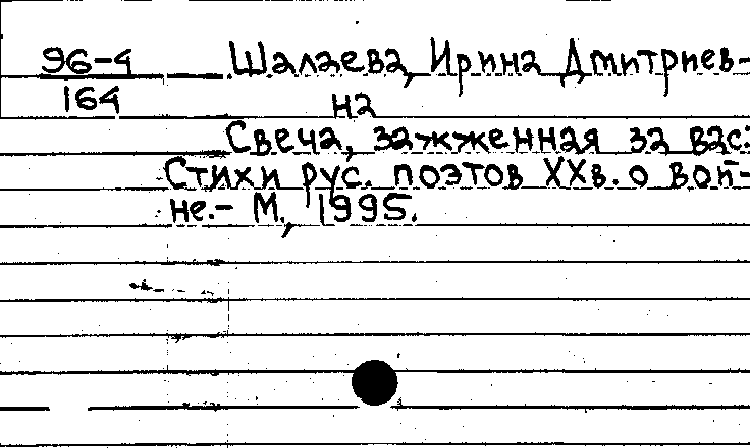 96-4 Шалаева, Ирина Дмитриев-
164 на
Свеча, зажженная за вас:
Стихи рус. поэтов XXв. о вой-
не.- М., 1995.